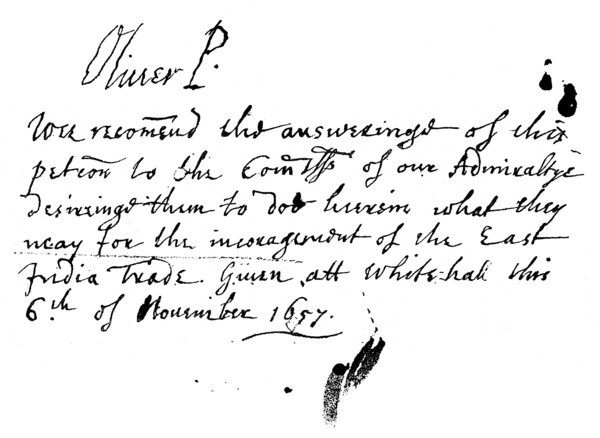 Oliver P.
Wee recom̄end the answeringe of this
petic̄on to the Com̄rs of our Admiraltye
desireinge them to doe herein what they
may for the incoragement of the East
India Trade. Given att Whitehall this
6th of November 1657.